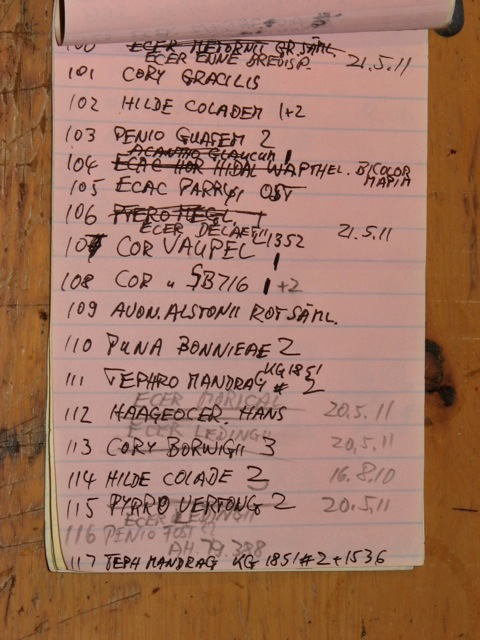 100 ECER METORNII GR.SÄML.
ECER ENNE BREVISP. 21.5.11
101 CORY GRACILIS
102 HILDE COLADEM 1+2
103 PENIO GUASEM 2
ACANTHO GLAUCUM 1
104 ECAC HOR HIDAL WAPTHEL. BICOLOR
MAPIM
105 ECAC PARRYSI OST
106 PTERO MEGL
ECER DECAET L1352 21.5.11
107 COR VAUPEL 1
108 COR " SB716 1 +2
109 AVON. ALSTONII ROTSÄML.
110 PUNA BONNIEAE 2
111 TEPHRO MANDRAG KG 1851
# 2
ECER MORICAL
112 HAAGEOCER. HANS 20.5.11
ECER LEDINGII
113 CORY BORWIGII 3 20.5.11
114 HILDE COLADE 2 16.8.10
115 PYRRO VERTONG 2 20.5.11
ECER LEDINGII
116 PENIO FOST
AH.79.388
117 TEPH MANDRAG KG 1851 #2+1536